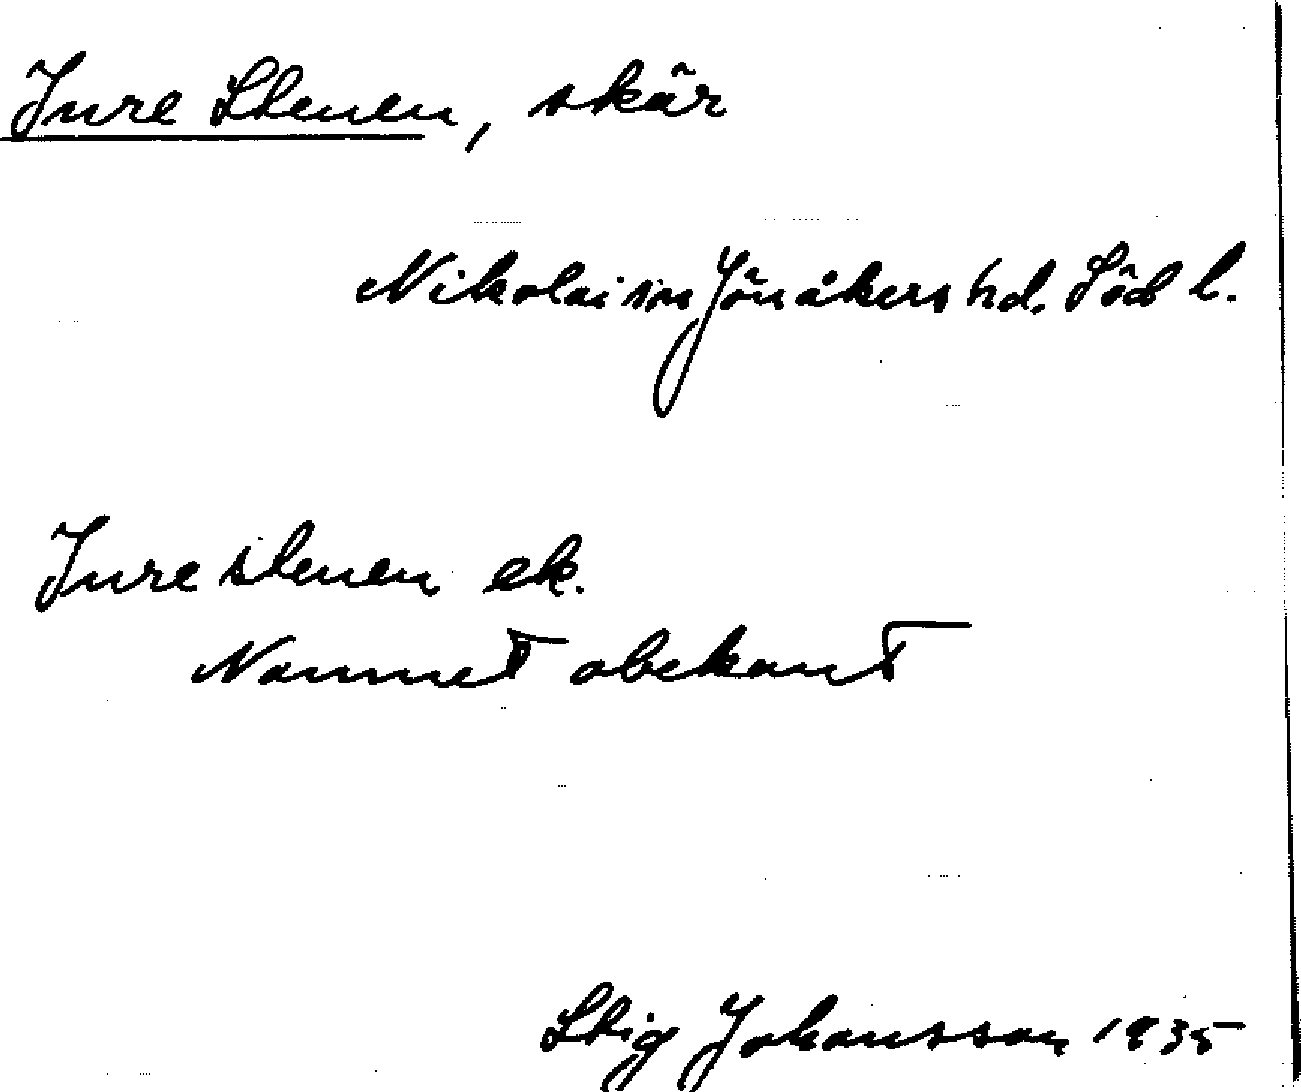 Jure Stenen, skär
Nikolai sn Jönåkers hd. Söd l.
Jure stenen ek.
Namnet obekant
Stig Johansson 1935